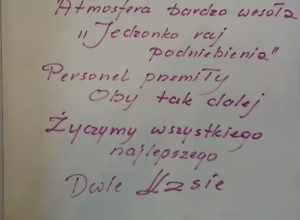 Atmosfera bardzo wesoła
„Jedzonko raj
podniebienia"
Personel przemiły
Oby tak dalej
Życzymy wszystkiego
najlepszego
Dwie Uzsie